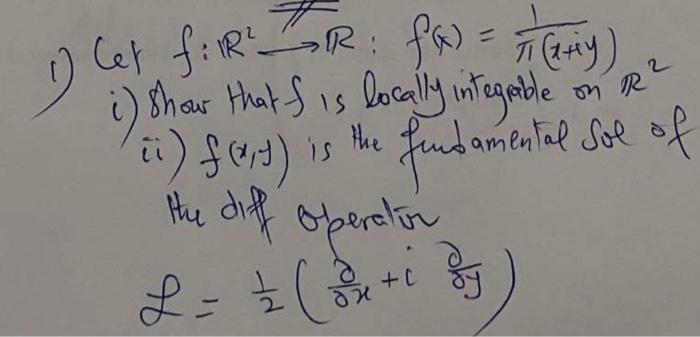 1) Let f : ℝ² → ℝ : f(x) = 1/π(x+iy)
i) Show that f is locally integrable on ℝ²
ii) f(x,y) is the fundamental sol of
the diff operator
ℒ = 1/2 ( ∂/∂x + i ∂/∂y )